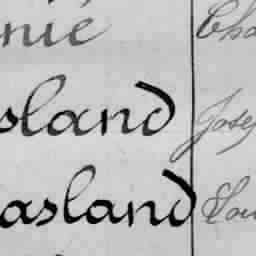 nie Cha
sland Josep
asland Lou